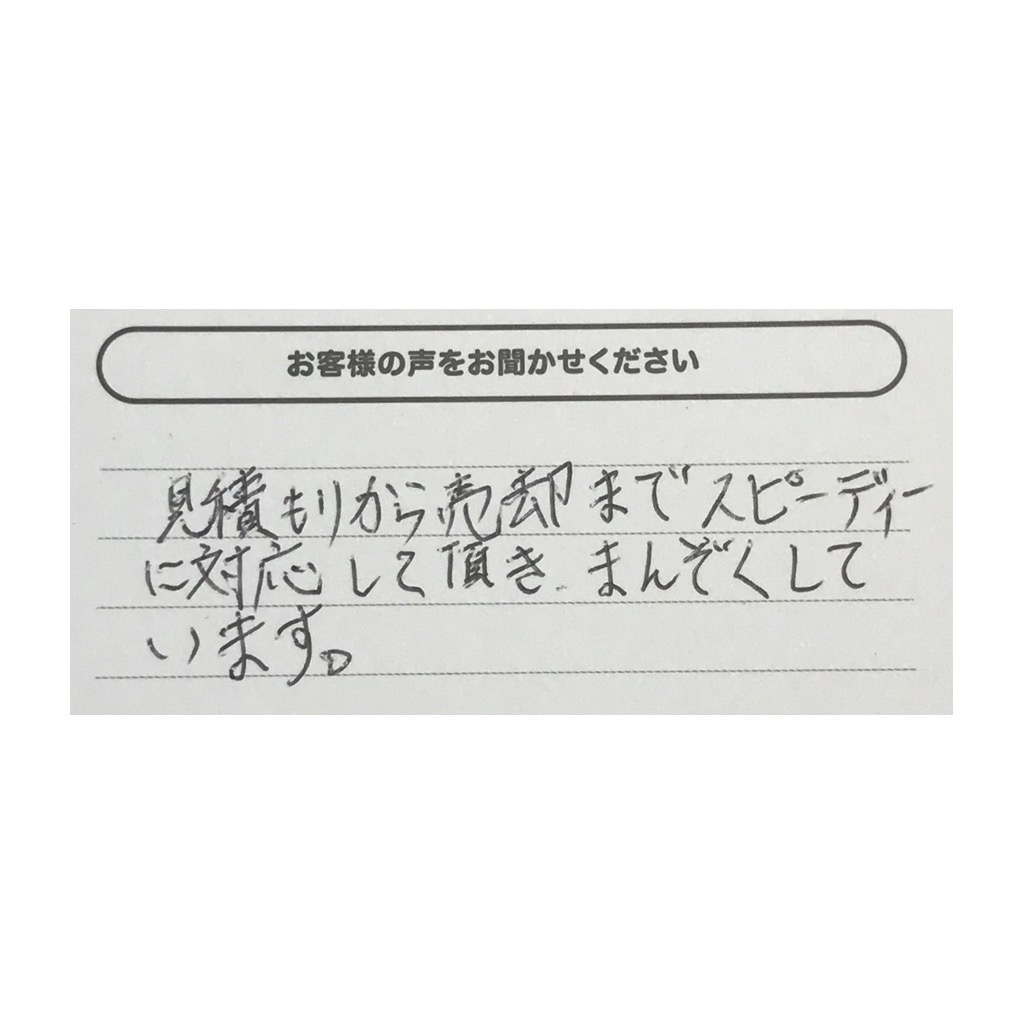 お客様の声をお聞かせください
見積もりから売却までスピーディー
に対応して頂き、まんぞくして
います。